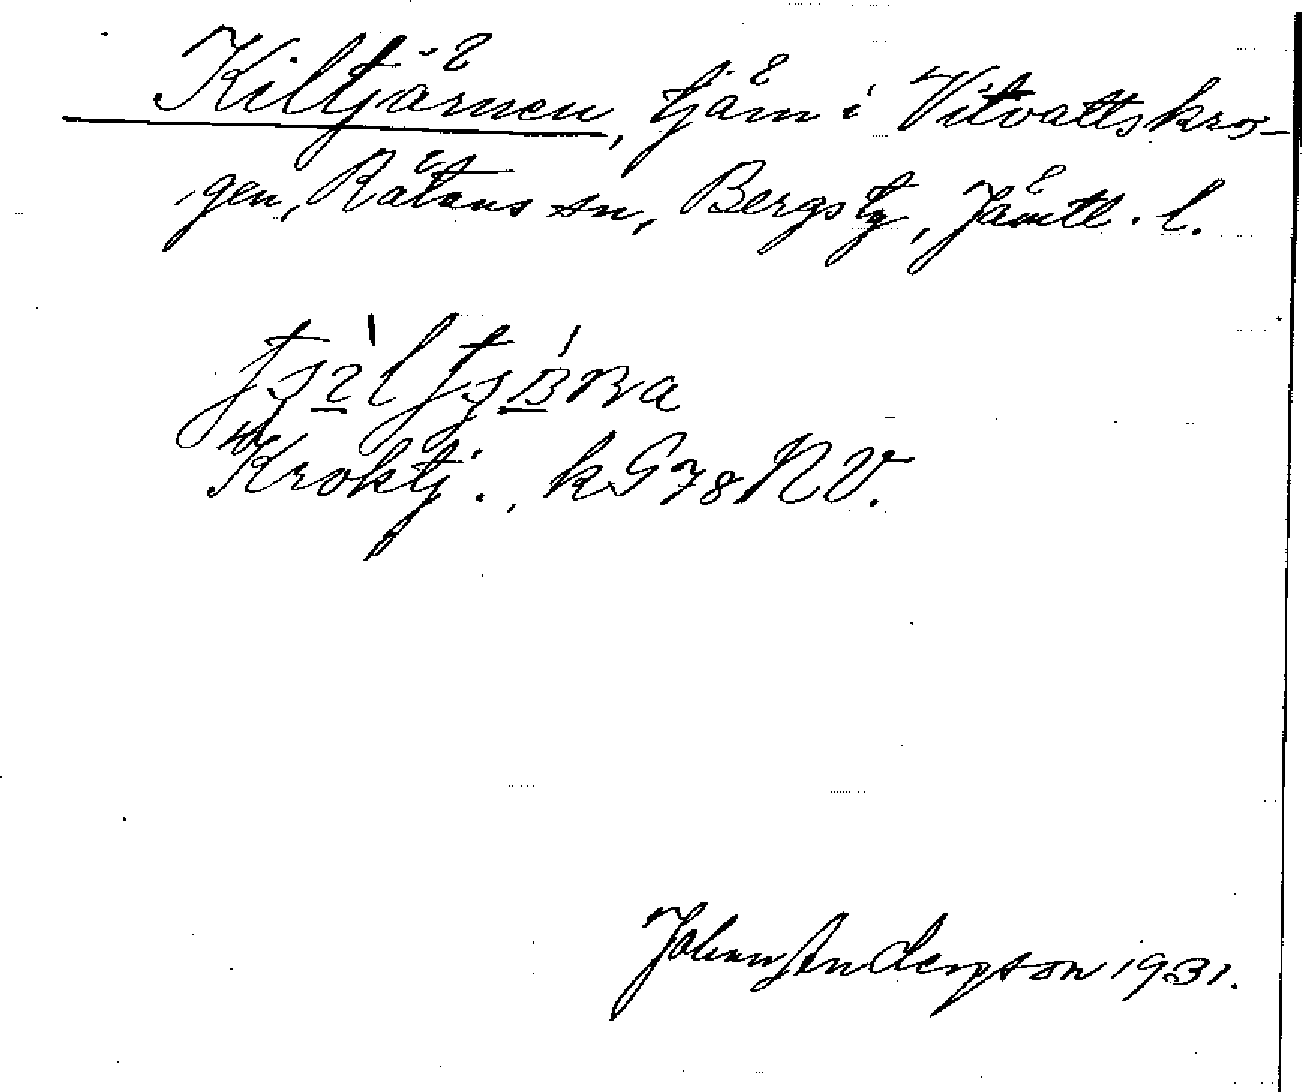 Kiltjärnen, tjärn i Vitvattskro-
gen, Rätans sn, Bergs tg, Jämtl. l.
Kroktj., k G 78 NV.
Johan Anderson 1931.